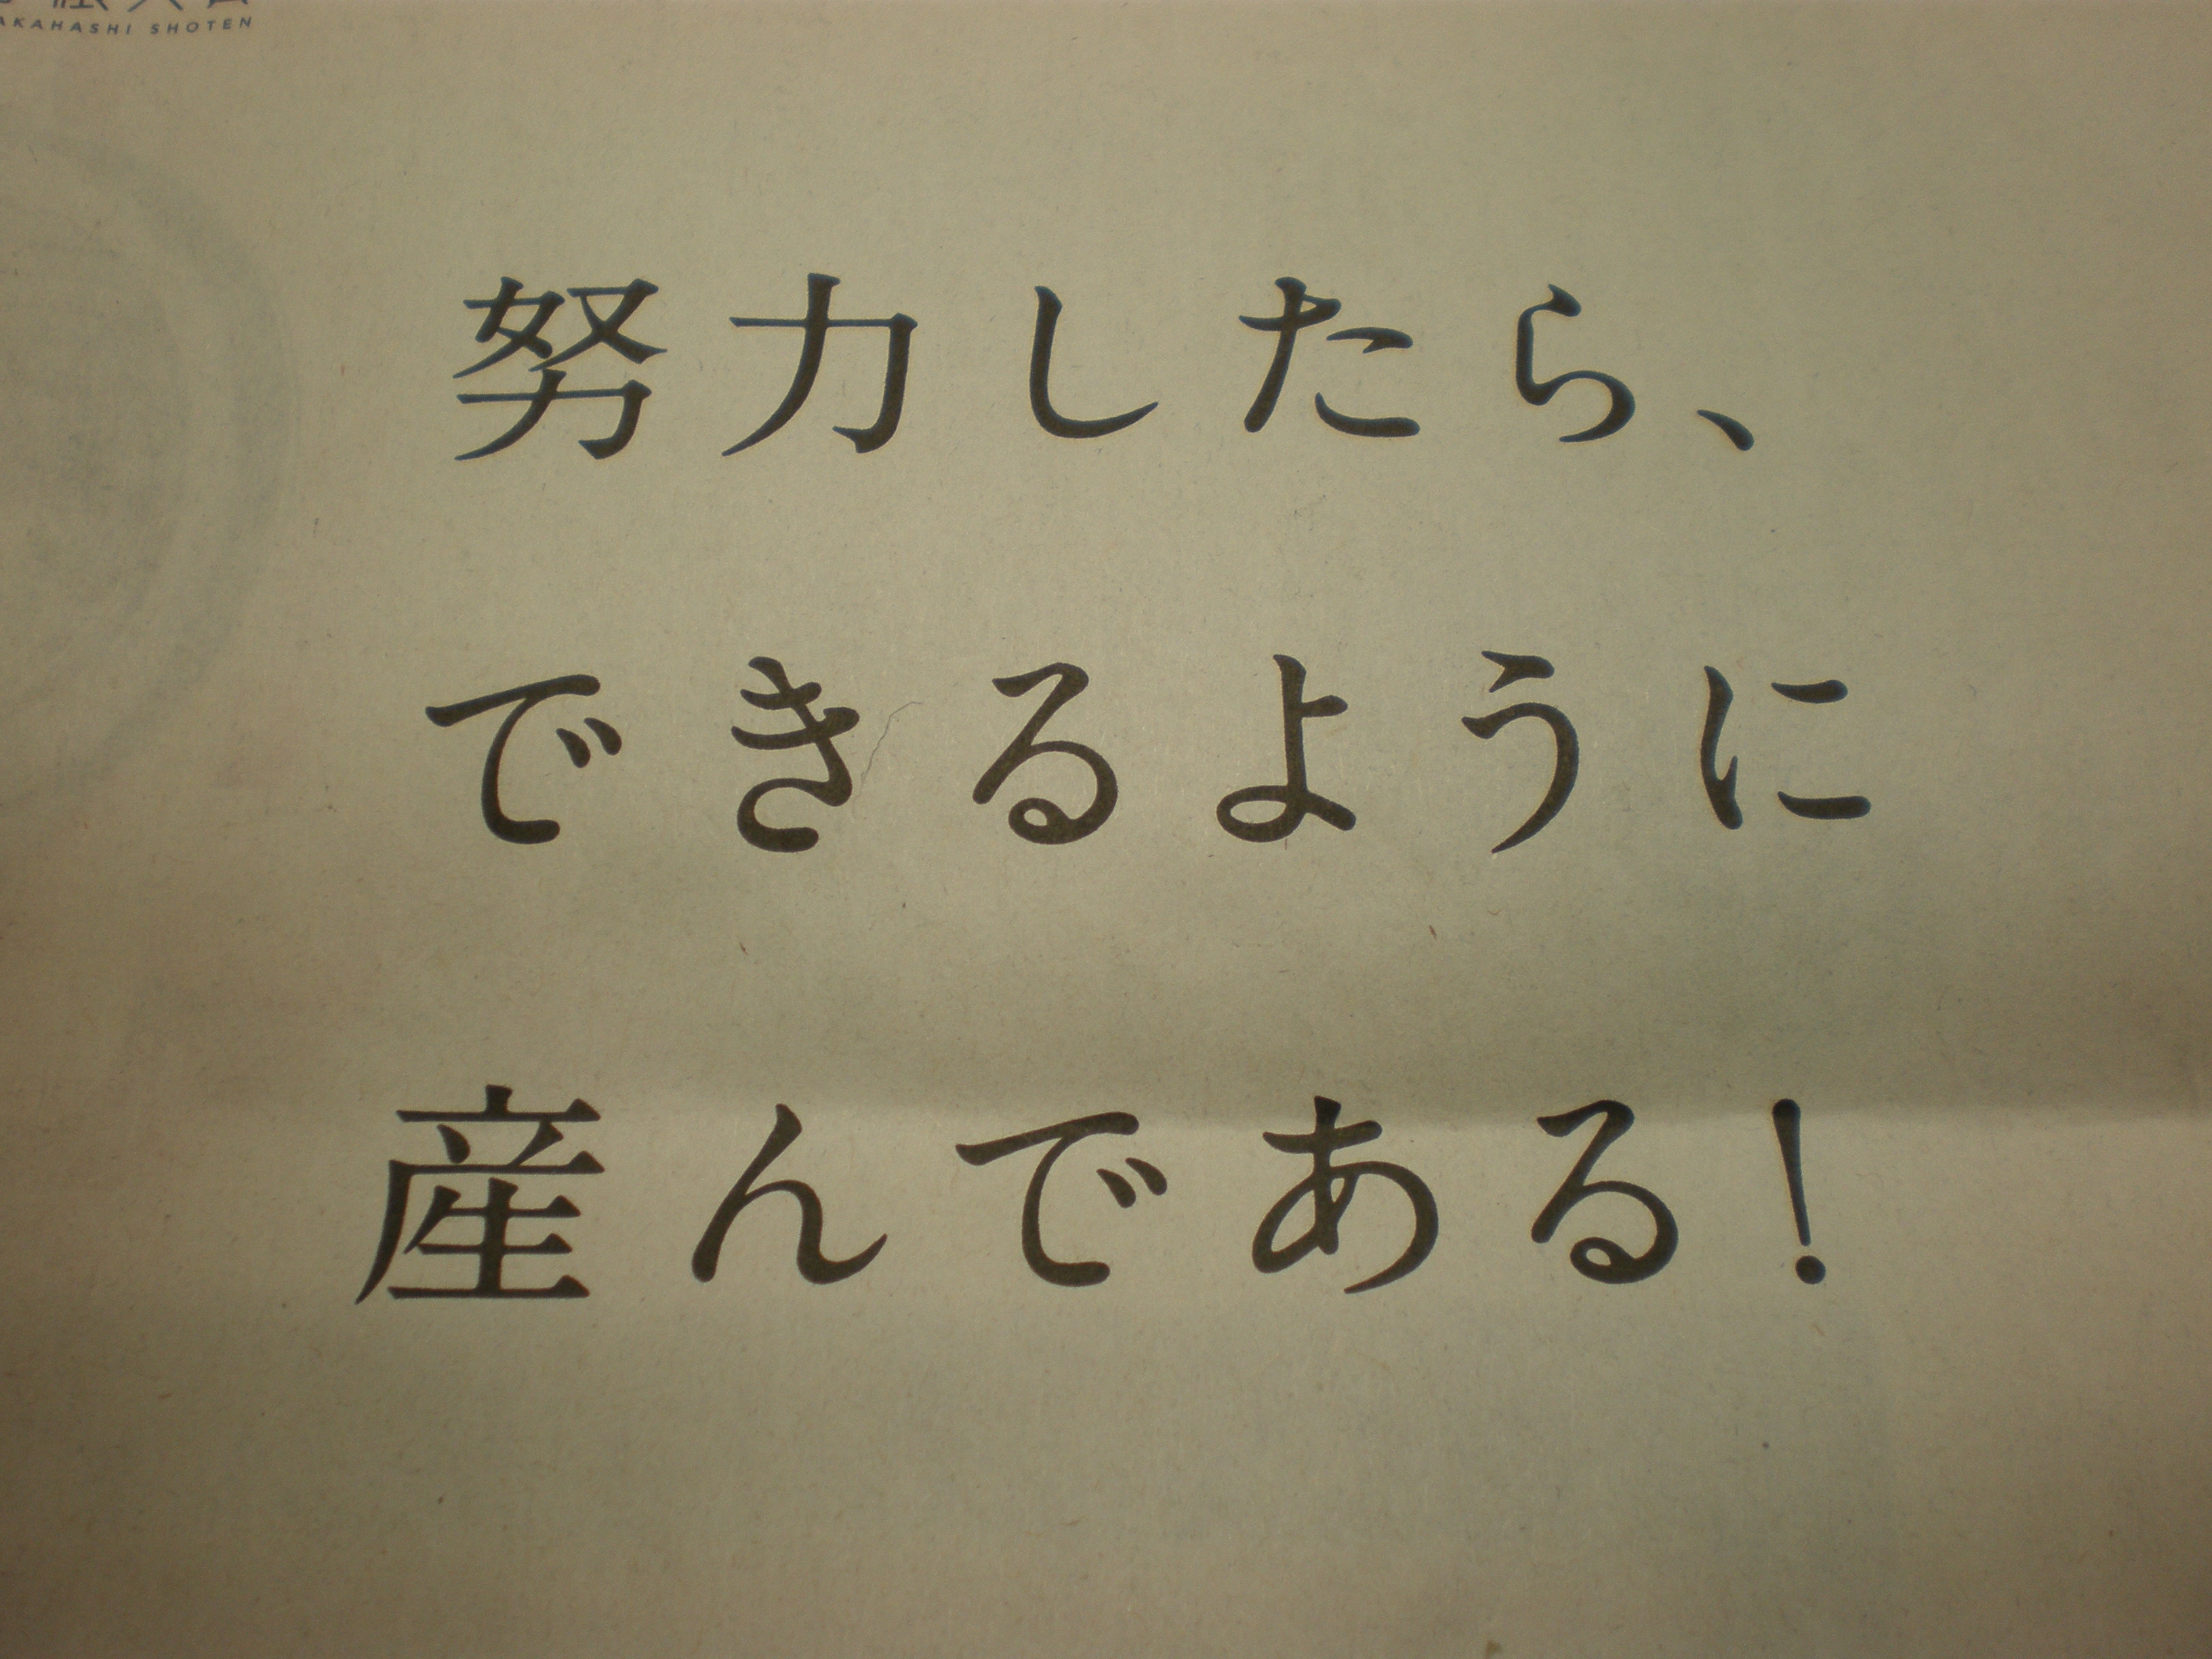 TAKAHASHI SHOTEN
努力したら、
できるように
産んである!